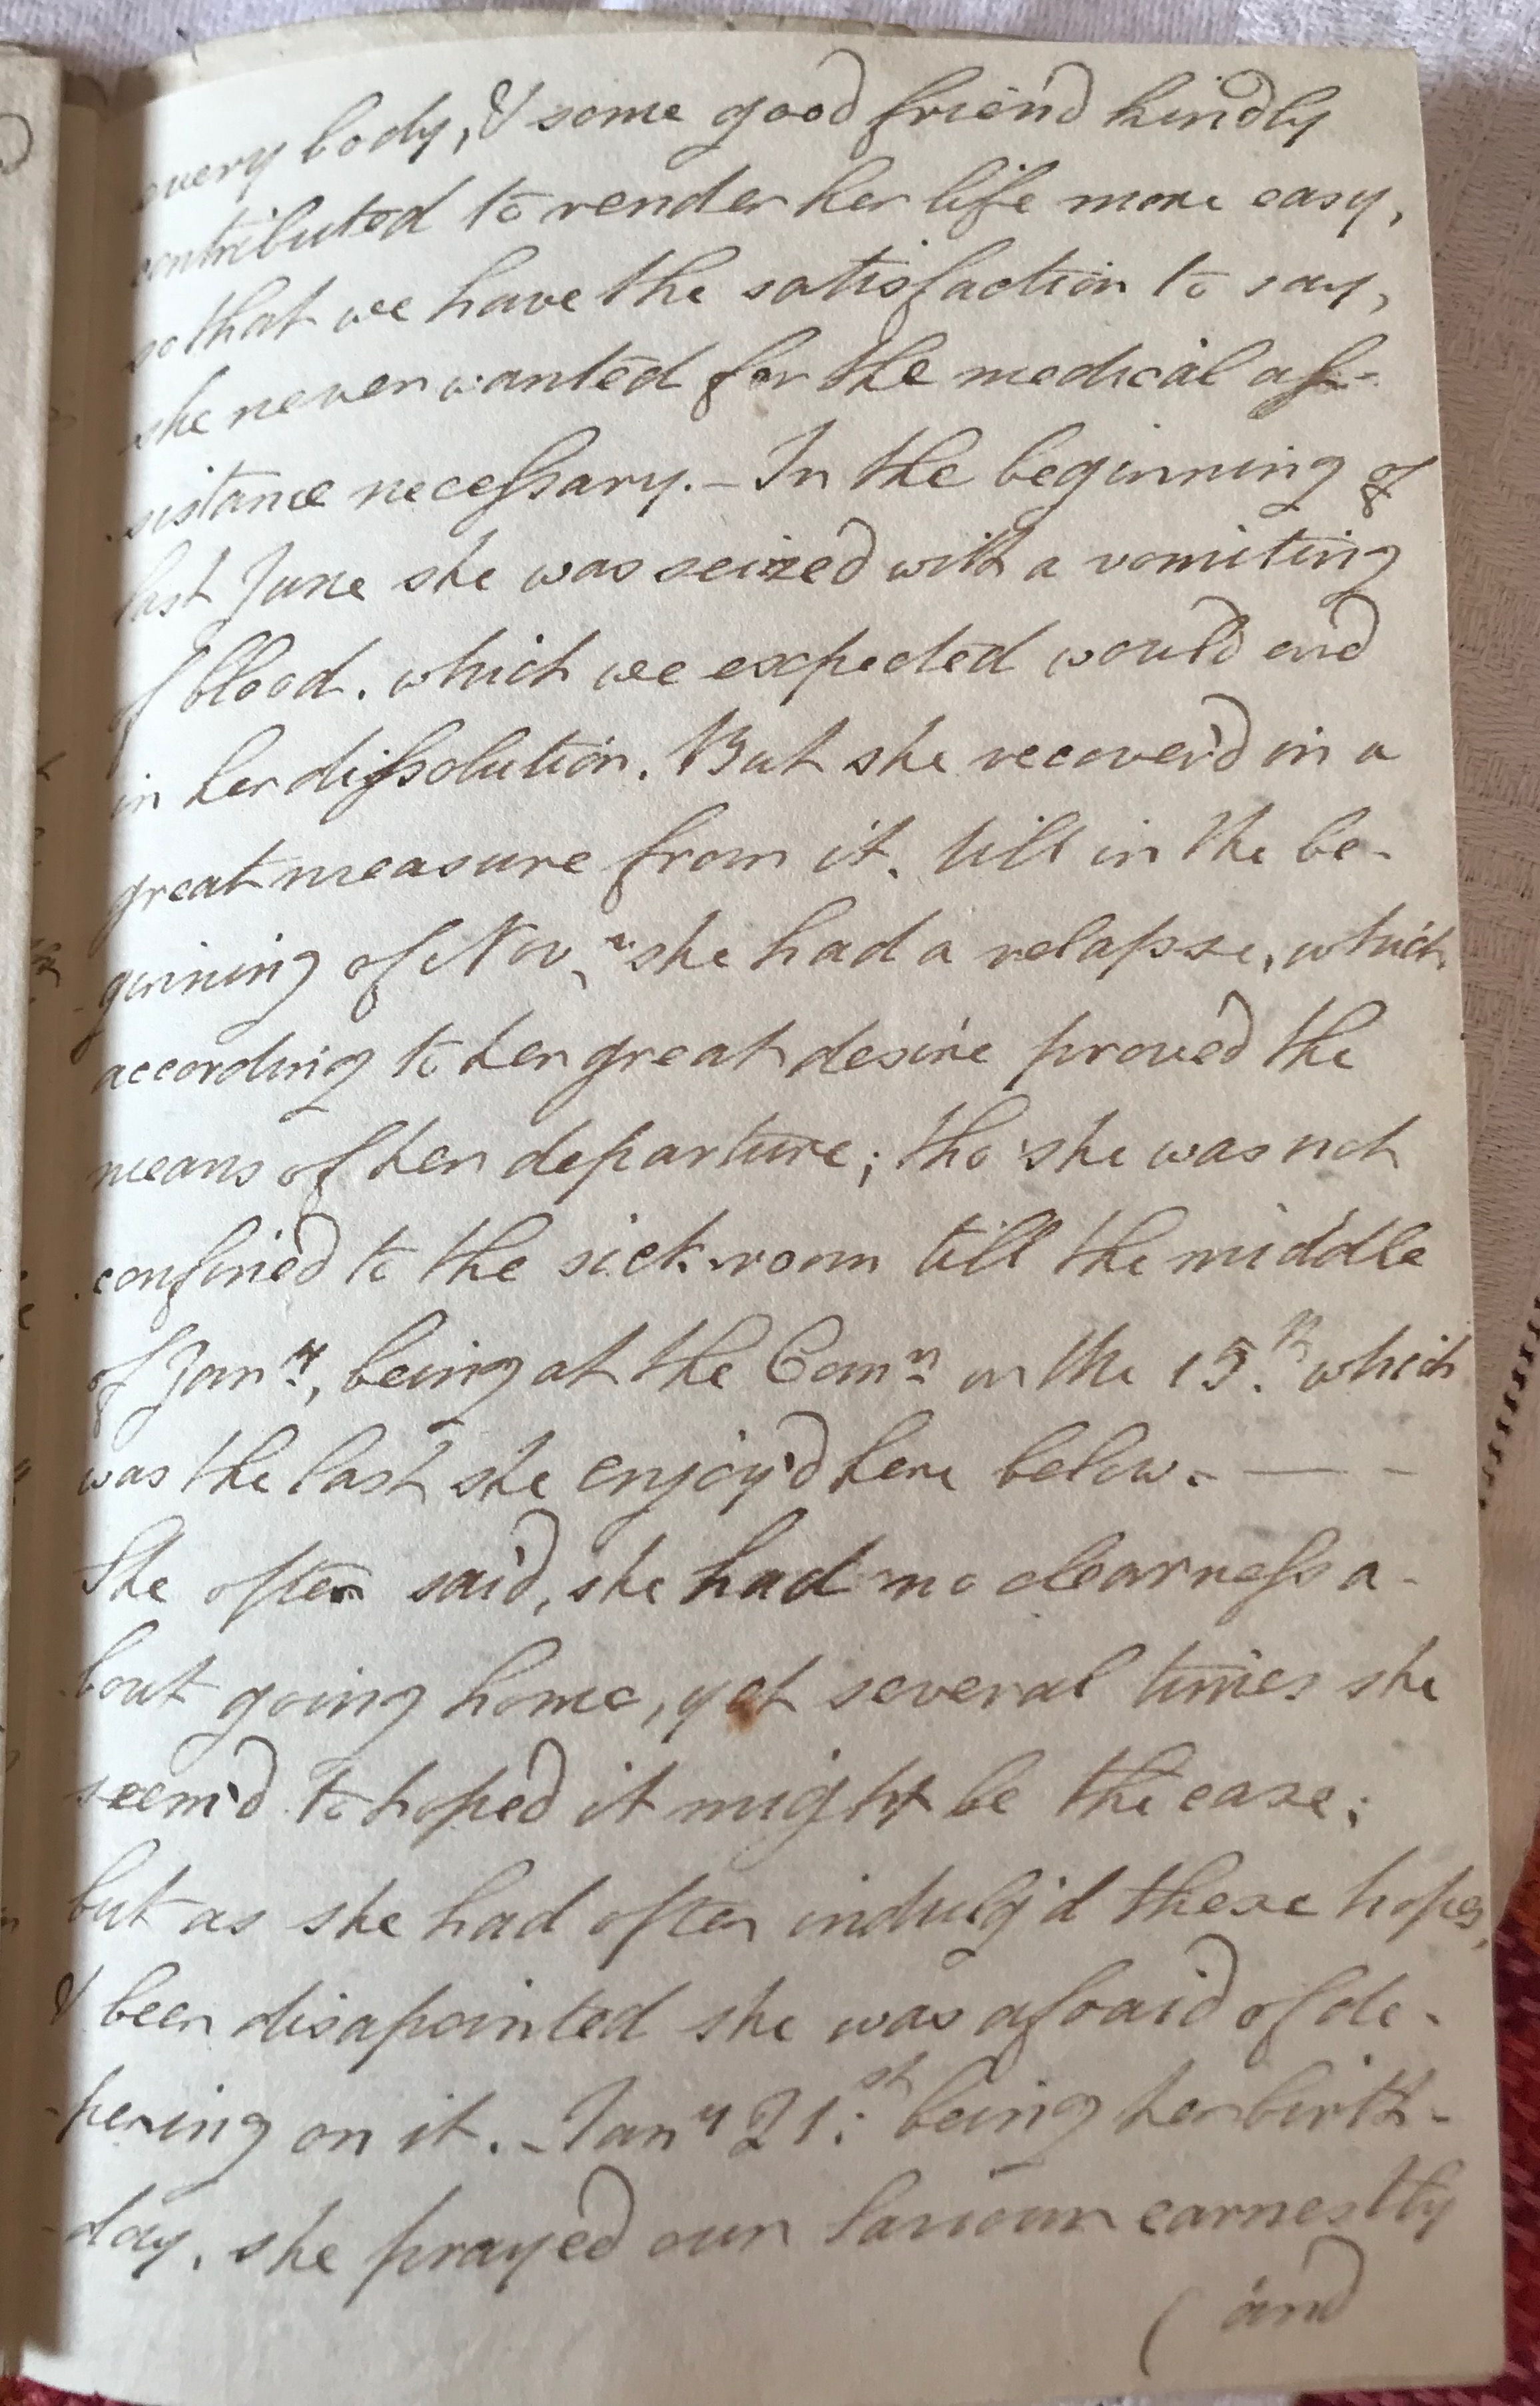 every body, & some good friend kindly
contributed to render her life more easy,
so that we have the satisfaction to say,
she never wanted for the medical as-
sistance necessary. – In the beginning of
last June she was seized with a vomiting
of blood. which we expected would end
in her dissolution. But she recover'd in a
great measure from it. till in the be-
ginning of Novr she had a relapse, which
according to her great desire proved the
means of her departure; tho' she was not
confined to the sick-room till the middle
of Jany, being at the Comn on the 15th which
was the last she enjoy'd here below. — -
She often said, she had no clearness a-
bout going home, yet several times she
seem'd to hoped it might be the case;
but as she had often indulg'd these hopes,
& been disapointed she was afraid of de-
pening on it. – Jany 21st being her birth-
day, she prayed our Saviour earnestly
(and